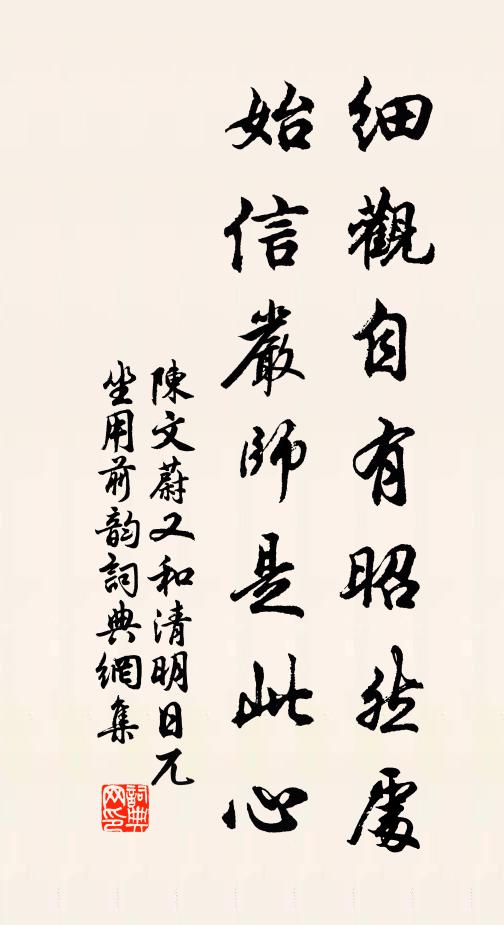 細觀自有昭然處
始信嚴師是此心
陳文蔚又和清明日兀
坐用前韵詞典網集
詞典网印